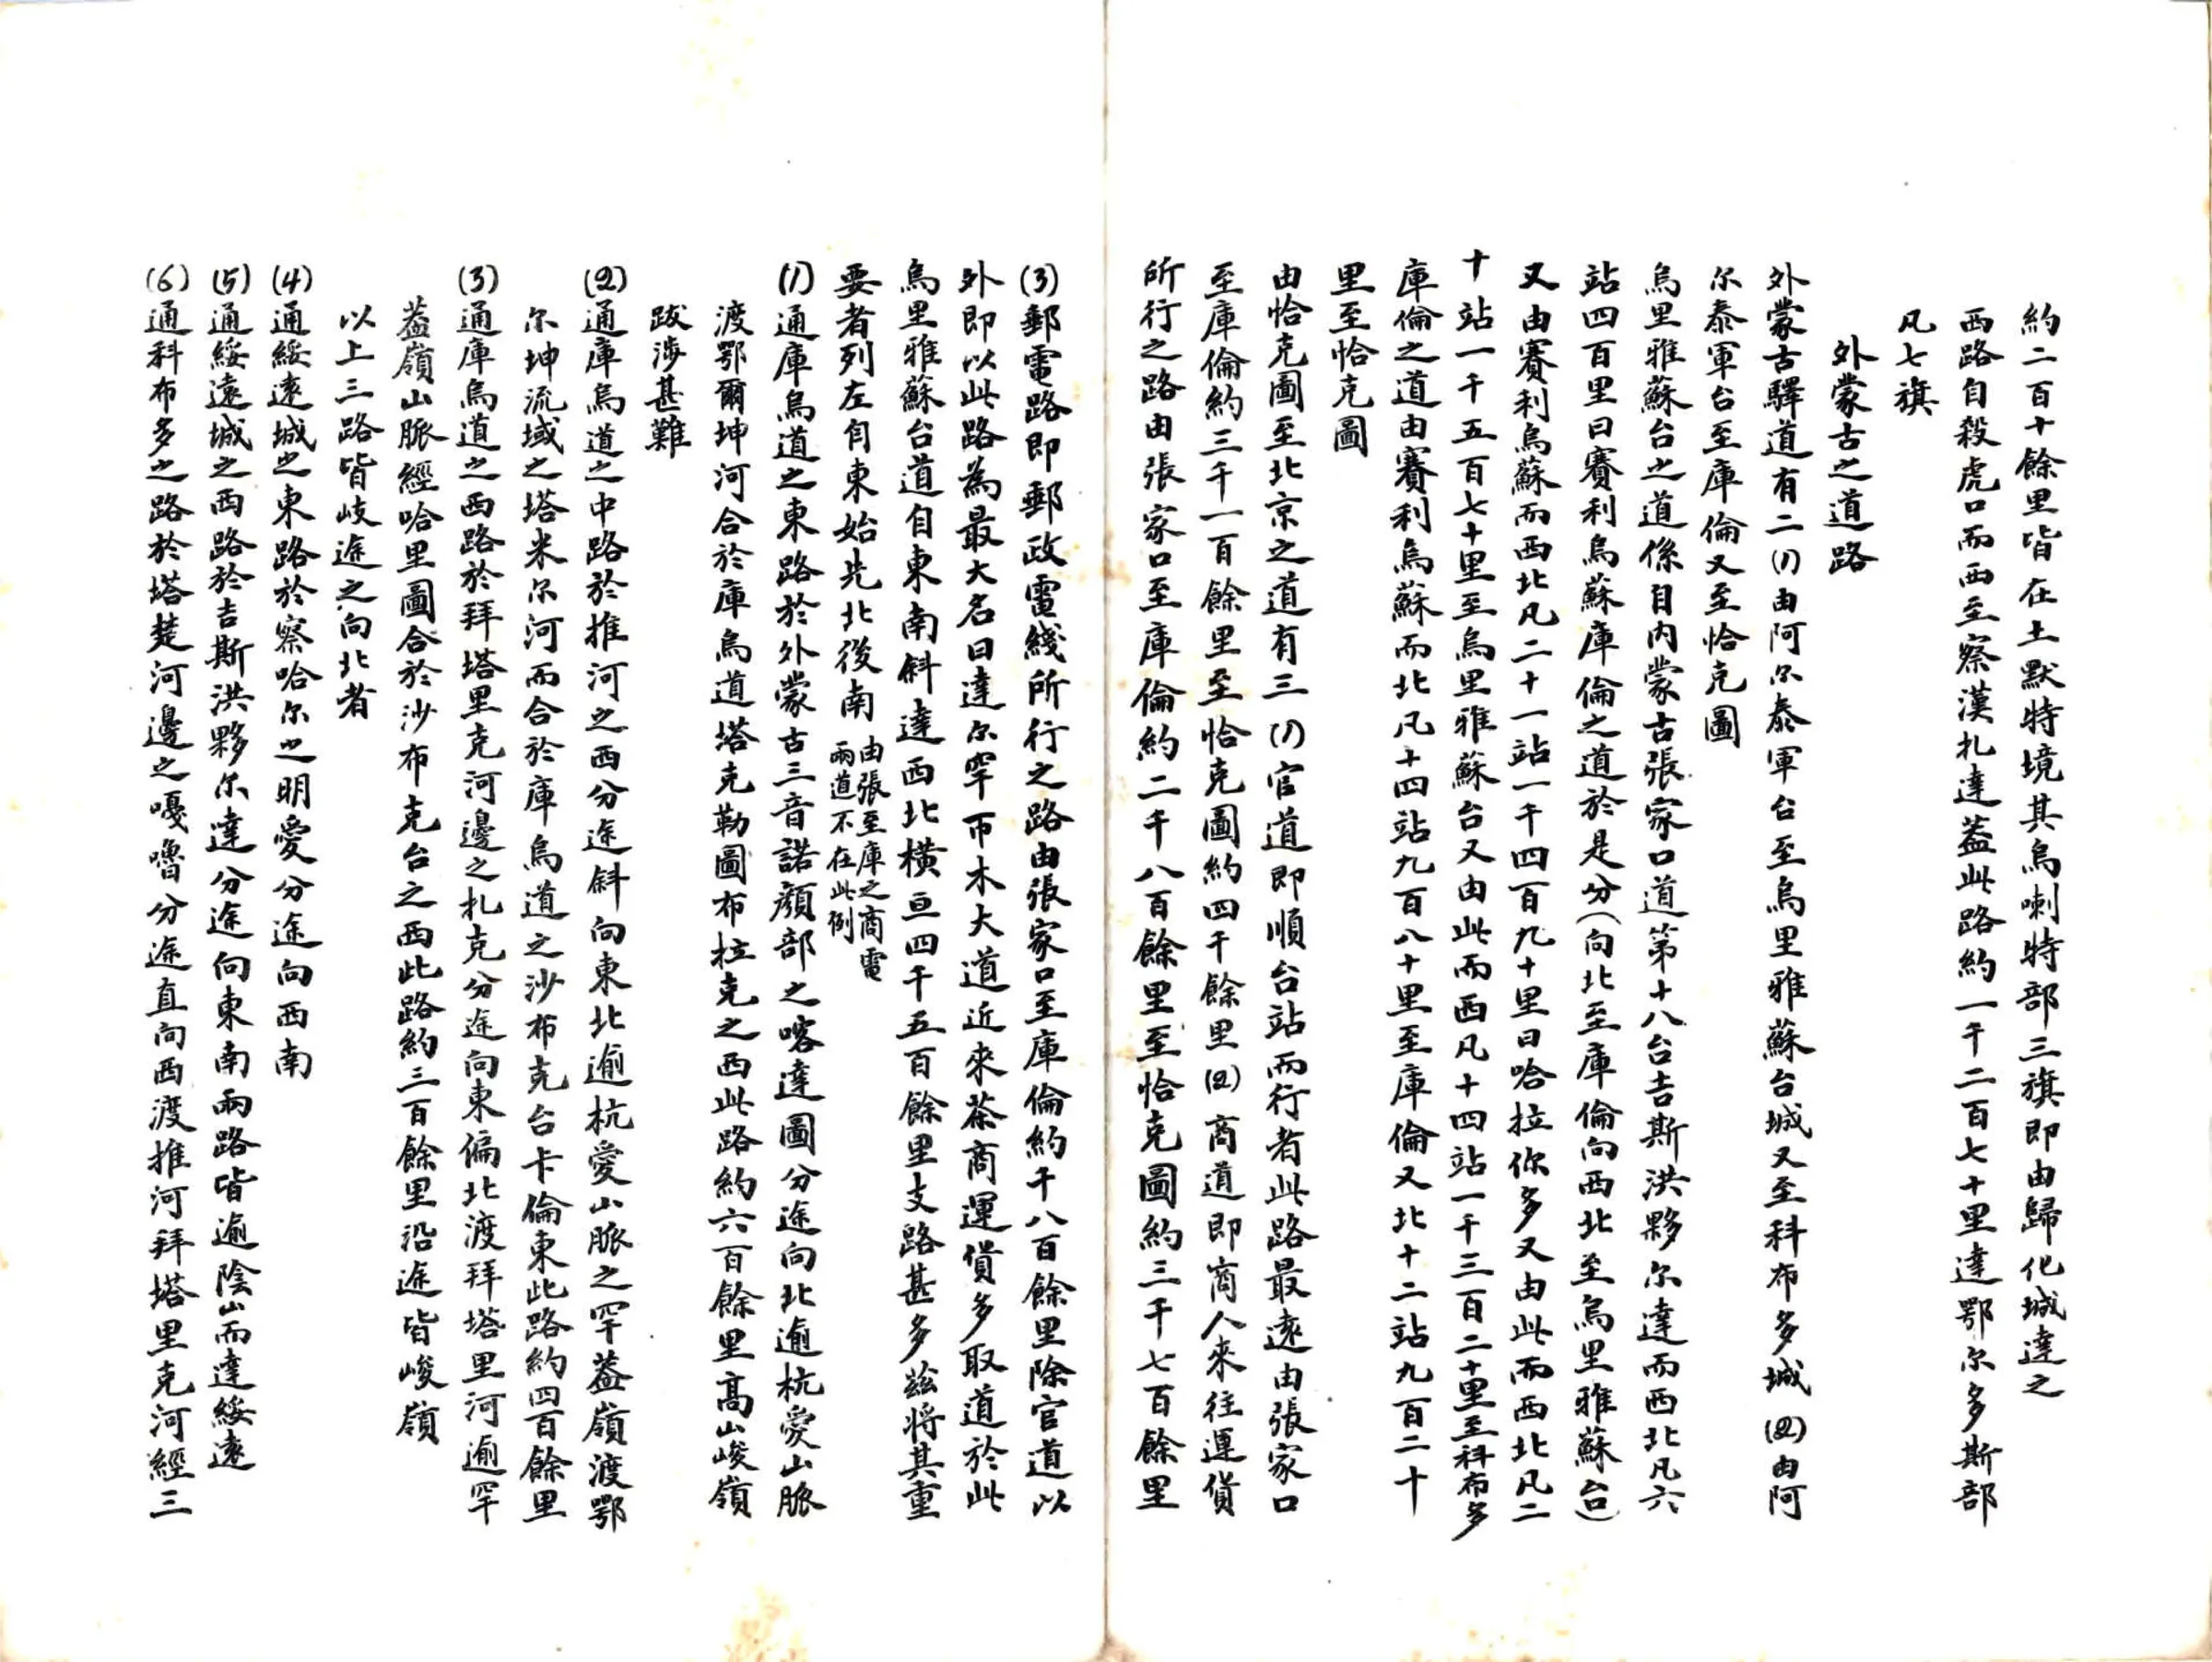 約二百十餘里皆在土默特境其烏喇特部三旗即由歸化城達之
西路自殺虎口而西至察漢扎達蓋此路約一千二百七十里達鄂尔多斯部
凡七旗
外蒙古之道路
外蒙古驛道有二(1)由阿尔泰軍台至烏里雅蘇台城又至科布多城(2)由阿
尔泰軍台至庫倫又至恰克圖
烏里雅蘇台之道係自內蒙古張家口道第十八台吉斯洪夥尔達而西北凡六
站四百里曰賽利烏蘇庫倫之道於是分(向北至庫倫向西北至烏里雅蘇台)
又由賽利烏蘇而西北凡二十一站一千四百九十里曰哈拉你多又由此而西北凡二
十站一千五百七十里至烏里雅蘇台又由此而西凡十四站一千三百二十里至科布多
庫倫之道由賽利烏蘇而北凡十四站九百八十里至庫倫又北十二站九百二十
里至恰克圖
由恰克圖至北京之道有三(1)官道即順台站而行者此路最遠由張家口
至庫倫約三千一百餘里至恰克圖約四千餘里(2)商道即商人來往運貨
所行之路由張家口至庫倫約二千八百餘里至恰克圖約三千七百餘里
(3)郵電路即郵政電綫所行之路由張家口至庫倫約千八百餘里除官道以
外即以此路為最大名曰達尔罕币木大道近來茶商運貨多取道於此
烏里雅蘇台道自東南斜達西北橫亘四千五百餘里支路甚多茲將其重
要者列左自東始先北後南
由張至庫之商電
兩道不在此例
(1)通庫烏道之東路於外蒙古三音諾顏部之喀達圖分途向北逾杭愛山脈
渡鄂爾坤河合於庫烏道塔克勒圖布拉克之西此路約六百餘里高山峻嶺
跋涉甚難
(2)通庫烏道之中路於推河之西分途斜向東北逾杭愛山脈之罕蓋嶺渡鄂
尔坤流域之塔米尔河而合於庫烏道之沙布克台卡倫東此路約四百餘里
(3)通庫烏道之西路於拜塔里克河邊之扎克分途向東偏北渡拜塔里河逾罕
蓋嶺山脈經哈里圖合於沙布克台之西此路約三百餘里沿途皆峻嶺
以上三路皆岐途之向北者
(4)通綏遠城之東路於察哈尔之明愛分途向西南
(5)通綏遠城之西路於吉斯洪夥尔達分途向東南兩路皆逾陰山而達綏遠
(6)通科布多之路於塔楚河邊之嘎嚕分途直向西渡推河拜塔里克河經三